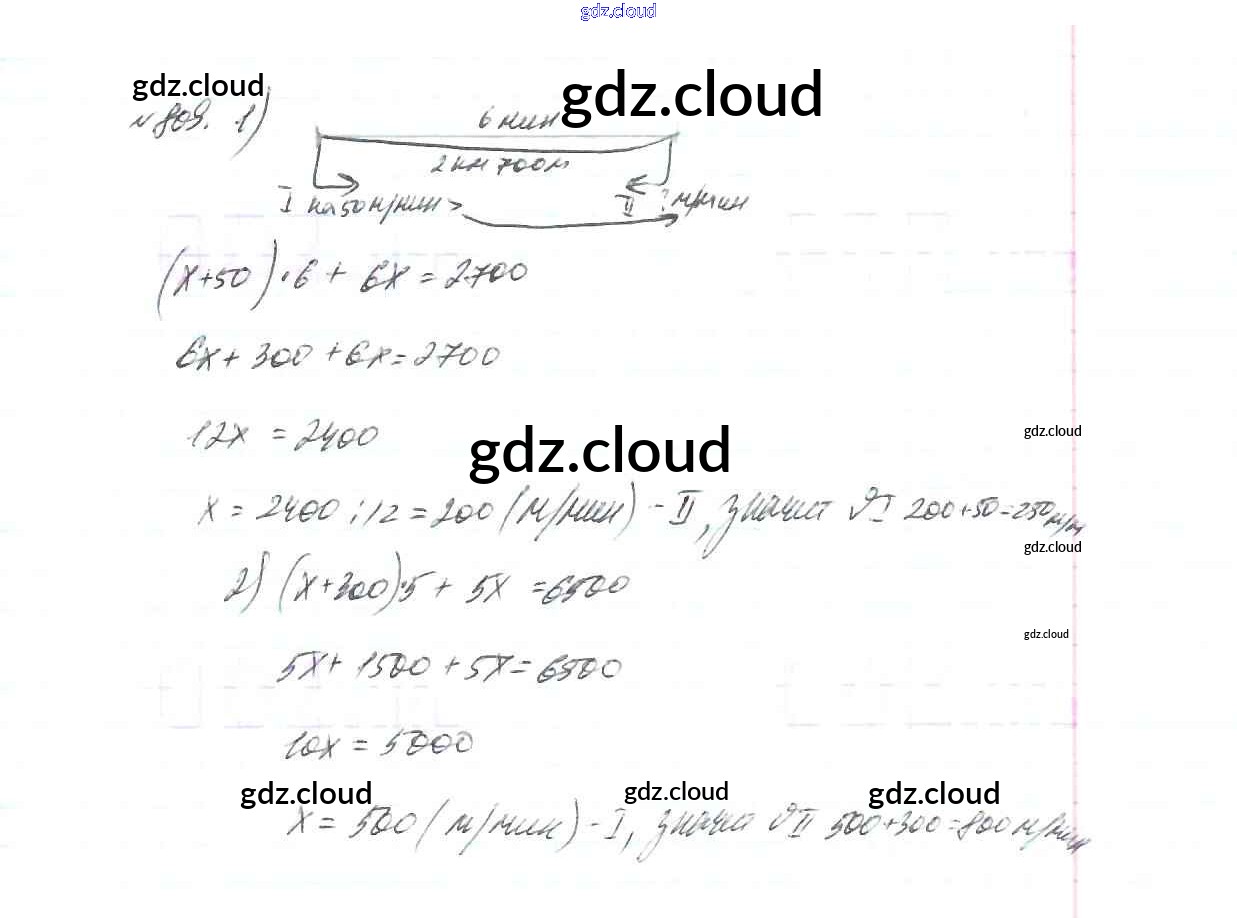 gdz.cloud
gdz.cloud
gdz.cloud
№809. 1)
6 мин
2 км 700м
I на 50 м/мин >
II ? м/мин
(x+50)·6 + 6x = 2700
6x + 300 + 6x = 2700
12x = 2400
gdz.cloud
gdz.cloud
x = 2400 : 12 = 200 (м/мин) - II, значит ϑI 200+50=250м/м
gdz.cloud
2) (x+300)·5 + 5x = 6500
gdz.cloud
5x + 1500 + 5x = 6500
10x = 5000
gdz.cloud
gdz.cloud
gdz.cloud
x = 500 (м/мин) - I, значит ϑII 500+300=800м/мин